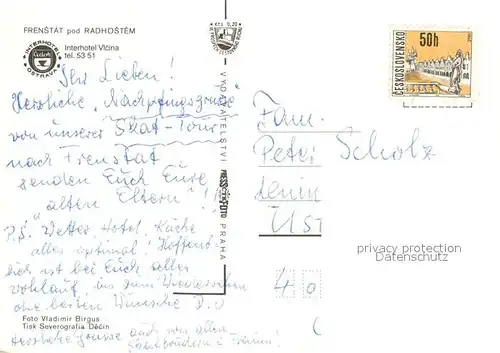 FRENŠTÁT pod RADHOŠTĚM
INTERHOTEL
OSTRAVA
Interhotel Vlčina
tel. 53 51
Kčs 0,20
VYDAVATELSTVÍ PRESSFOTO PRAHA
ČESKOSLOVENSKO
50h
Ihr Lieben!
Herzliche
von unserer Skat-Tour
nach Frenstat
senden Euch Eure
"alten Eltern"!
P.S. Wetter, Hotel, Küche
alles optimal! Hoffent-
lich ist bei Euch alles
wohlauf, bis zum Wiedersehen
die besten Wünsche
Herzliche Grüsse auch von allen
Fam.
Peter Scholz
Lenin
Ust
40
privacy protection
Datenschutz
Foto Vladimír Birgus
Tisk Severografia Děčín